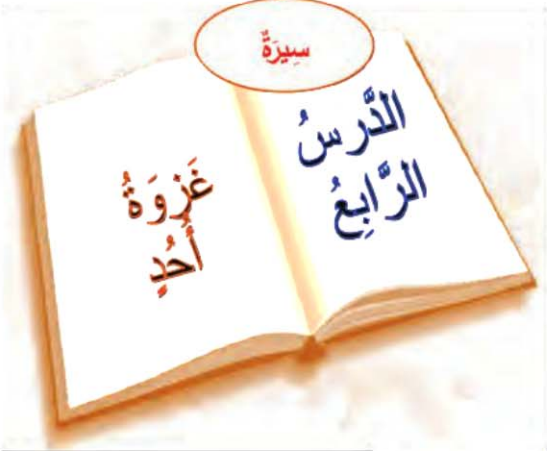 سِيرَةٌ
الدَّرسُ
الرَّابِعُ
غَزْوَةُ
أُحُدٍ